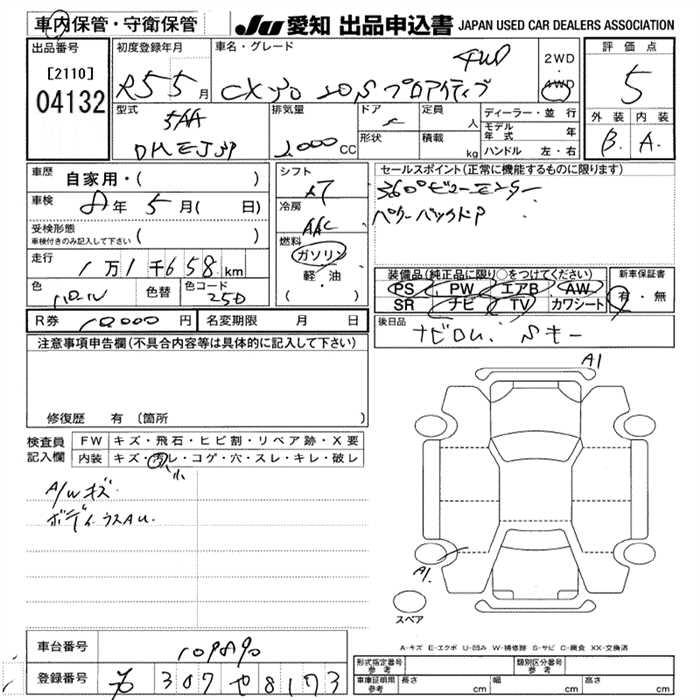 車内保管・守衛保管
JU 愛知 出品申込書 JAPAN USED CAR DEALERS ASSOCIATION
出品番号
[2110]
04132
初度登録年月
R5 5月
車名・グレード
CX30 20S プロアクティブ 4WD
2WD
4WD
評価点
5
外装 内装
B. A.
型式
5AA
DMEJ3P
排気量
2000 CC
ドア
5
形状
定員
人
積載
kg
ディーラー・並行
モデル年式 年
ハンドル 左・右
車歴
自家用・( )
車検
8年 5月( 日)
受検形態
車検付きのみ記入して下さい ( )
走行
1万1千658km
色
色替
色コード
25D
シフト
AT
冷房
AAC
燃料
ガソリン
軽・油
( )
セールスポイント(正常に機能するものに限ります)
360°ビューモニター
パワーバックドア
装備品(純正品に限り○をつけてください)
PS PW エアB AW
SR ナビ TV カワシート
新車保証書
有・無
R券 10000円
名変期限 月 日
後日品
ナビROM. Sキー
注意事項申告欄(不具合内容等は具体的に記入して下さい)
修復歴 有 (箇所 )
検査員
記入欄
FW キズ・飛石・ヒビ割・リペア跡・X要
内装 キズ・汚レ・コゲ・穴・スレ・キレ・破レ
小
A/Wキズ
ボディ ウスAU.
A1
A1.
スペア
A-キズ E-エクボ U-凹み W-補修跡 S-サビ C-腐食 XX-交換済
車台番号
109890
登録番号
307 せ 8173
形式指定番号
参考
類別区分番号
参考
車庫証明用
参考
長さ cm 幅 cm 高さ cm